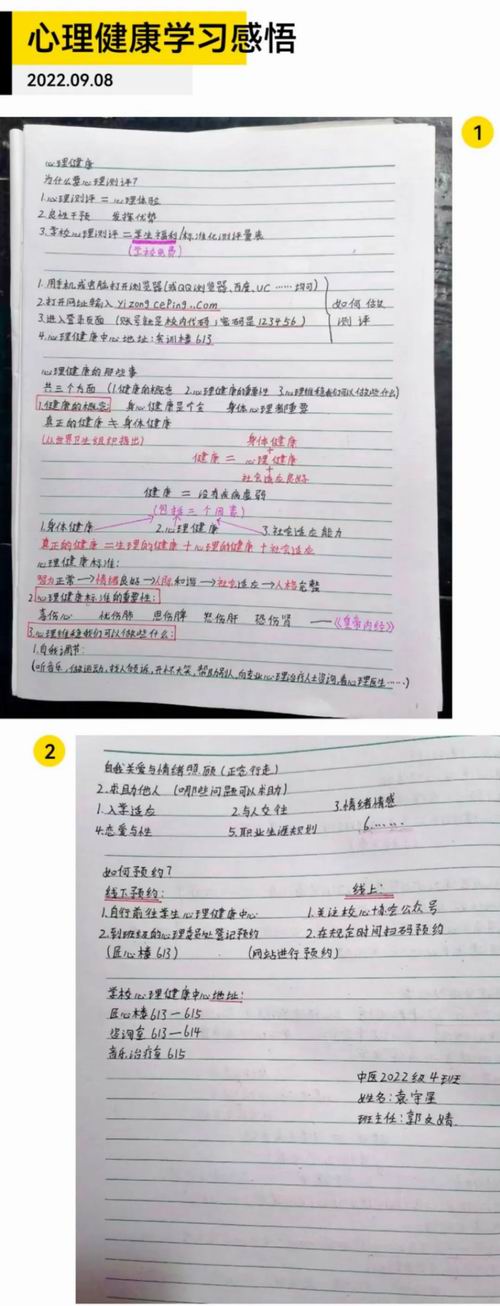 心理健康学习感悟
2022.09.08
1
心理健康
为什么要心理测评?
1.心理测评 = 心理体验
2.良性干预 发挥优势
3.学校心理测评 = 学生福利/标准化测评量表
(学校免费)
1.用手机或电脑打开浏览器(或QQ浏览器、百度、UC……均可)
2.打开网址输入Yizong CePing..Com
3.进入登录页面(账号就是校内代码;密码是123456)
4.心理健康中心地址:实训楼613
如何做
测评
心理健康的那些事
共三个方面(1.健康的概念 2.心理健康的重要性 3.心理维稳我们可以做些什么)
1.健康的概念: 身心健康是个宝 身体心理都重要
真正的健康 ≠ 身体健康
(从世界卫生组织指出) 身体健康
+
健康 = 心理健康
+
社会适应良好
健康 = 没有疾病虚弱
(包括三个因素)
1.身体健康 2.心理健康 3.社会适应能力
真正的健康 = 生理的健康 + 心理的健康 + 社会适应
心理健康标准:
智力正常→情绪良好→人际和谐→社会适应→人格完整
2.心理健康标准的重要性:
喜伤心 忧伤肺 思伤脾 怒伤肝 恐伤肾 ——《黄帝内经》
3.心理维稳我们可以做些什么:
1.自我调节:
(听音乐,做运动,找人倾诉,开怀大笑,帮助别人,向专业心理治疗人士咨询,看心理医生……)
2
自我关爱与情绪照顾(正念行走)
2.求助他人(哪些问题可以求助)
1.入学适应 2.与人交往 3.情绪情感
4.恋爱与性 5.职业生涯规划 6.……
如何预约?
线下预约: 线上:
1.自行前往学生心理健康中心 1.关注校心协会公众号
2.到班级的心理委员处登记预约 2.在规定时间扫码预约
(匠心楼613) (网站进行预约)
学校心理健康中心地址:
匠心楼613—615
咨询室613—614
音乐治疗室615
中医2022级4班
姓名:袁宇星
班主任:郭文婧